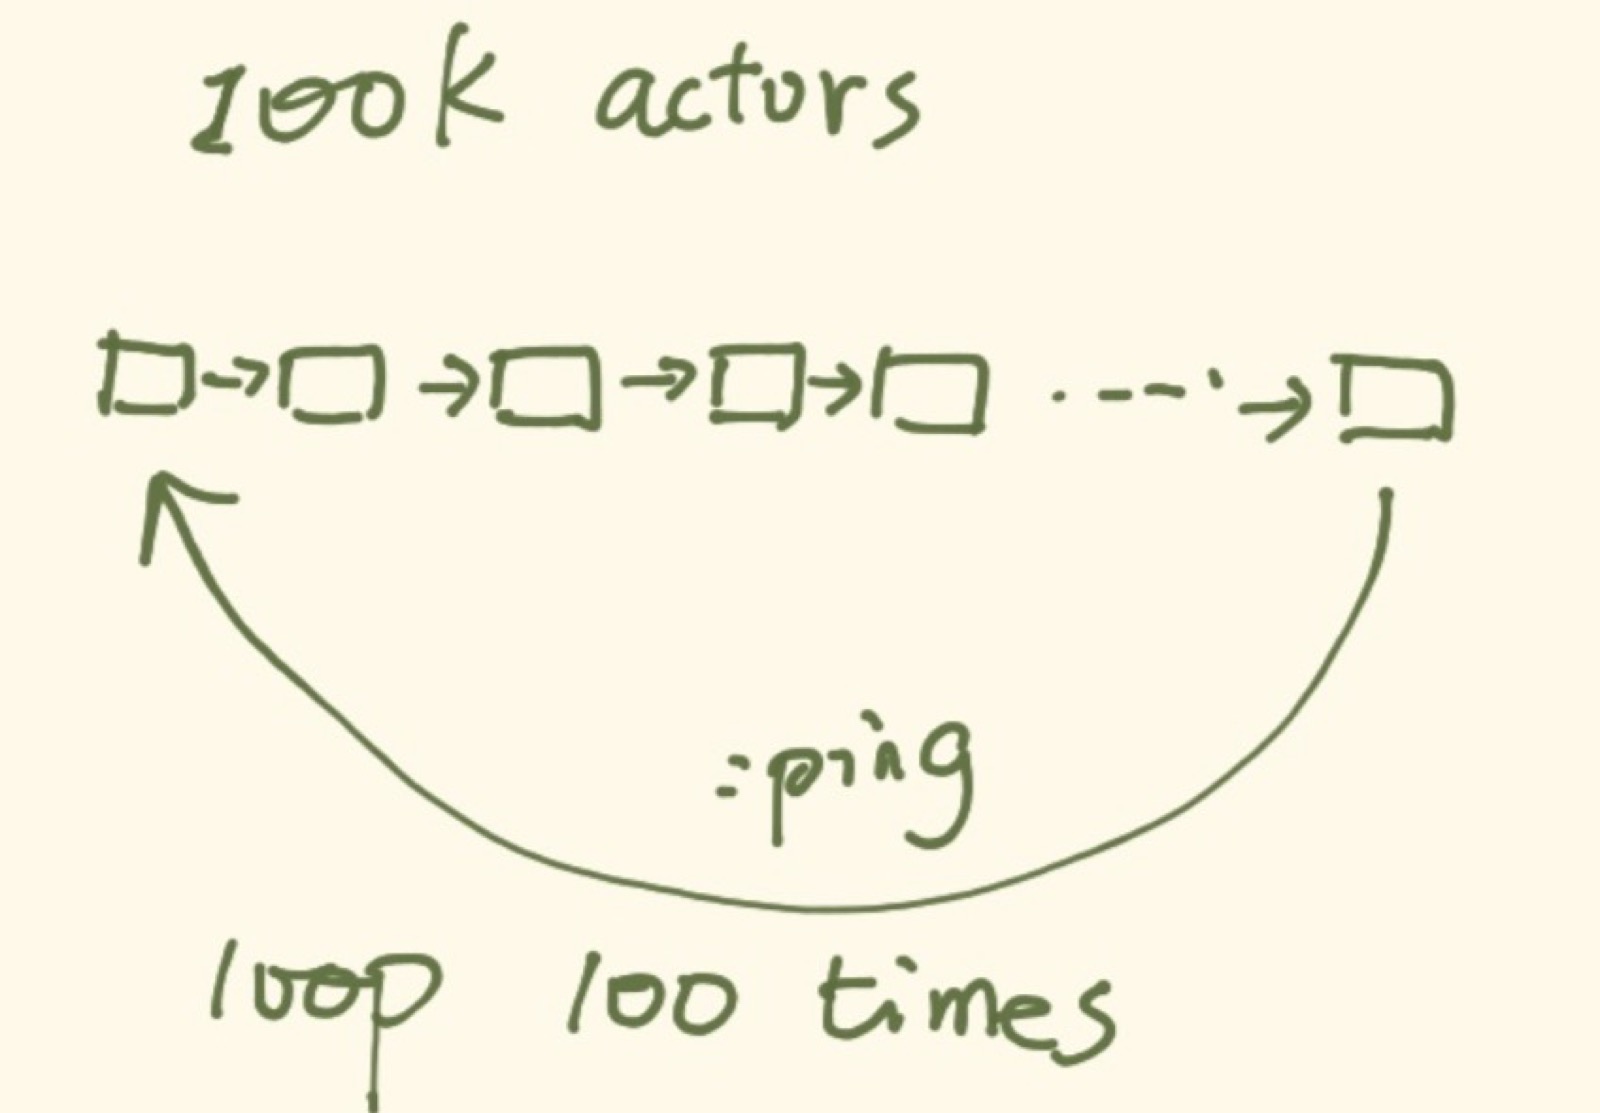 100k actors
:ping
loop 100 times